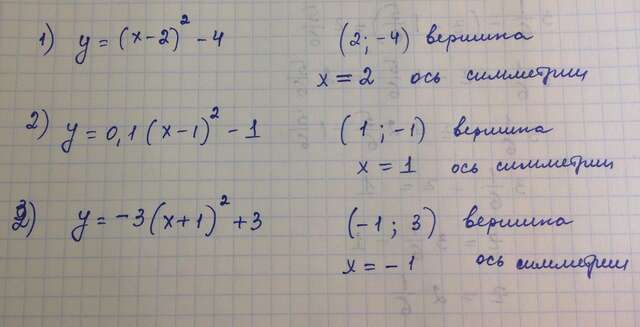 1) y = (x-2)² - 4 (2; -4) вершина
x = 2 ось симметрии
2) y = 0,1 (x-1)² - 1 (1; -1) вершина
x = 1 ось симметрии
3) y = -3 (x+1)² + 3 (-1; 3) вершина
x = -1 ось симметрии